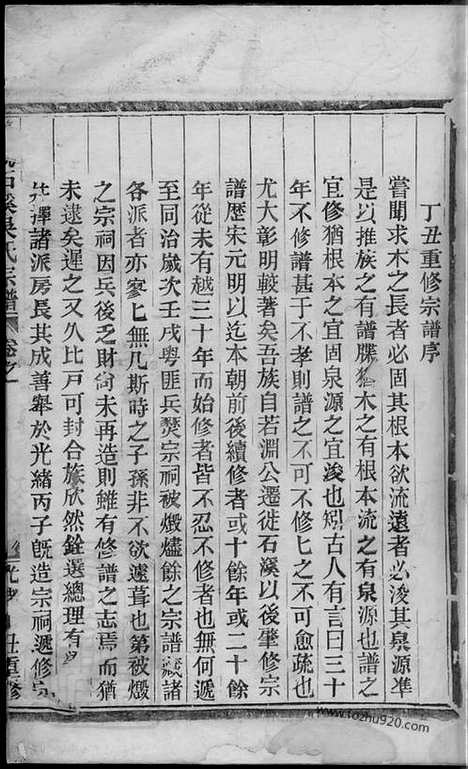 丁丑重修宗譜序
嘗聞求木之長者必固其根本欲流遠者必浚其泉源準
是以推族之有譜牒猶木之有根本流之有泉源也譜之
宜修猶根本之宜固泉源之宜浚也矧古人有言曰三十
年不修譜甚于不孝則譜之不可不修匕之不可愈疏也
尤大彰明較著矣吾族自若淵公遷徙石溪以後肇修宗
譜歷宋元明以迄本朝前後續修者或十餘年或二十餘
年從未有越三十年而始修者皆不忍不修者也無何遞
至同治歲次壬戌粵匪兵燹宗祠被燬燼餘之宗譜藏諸
各派者亦寥匕無几斯時之子孫非不欲遽葺也第被燬
之宗祠因兵後乏財尚未再造則雖有修譜之志焉而猶
未逮矣遲之又久比戸可封合族欣然銓選總理有
擇諸派房長其成善舉於光緒丙子旣造宗祠遞修宗
石溪吳氏宗譜 卷之 光 丑重修
www.tozhu920.com